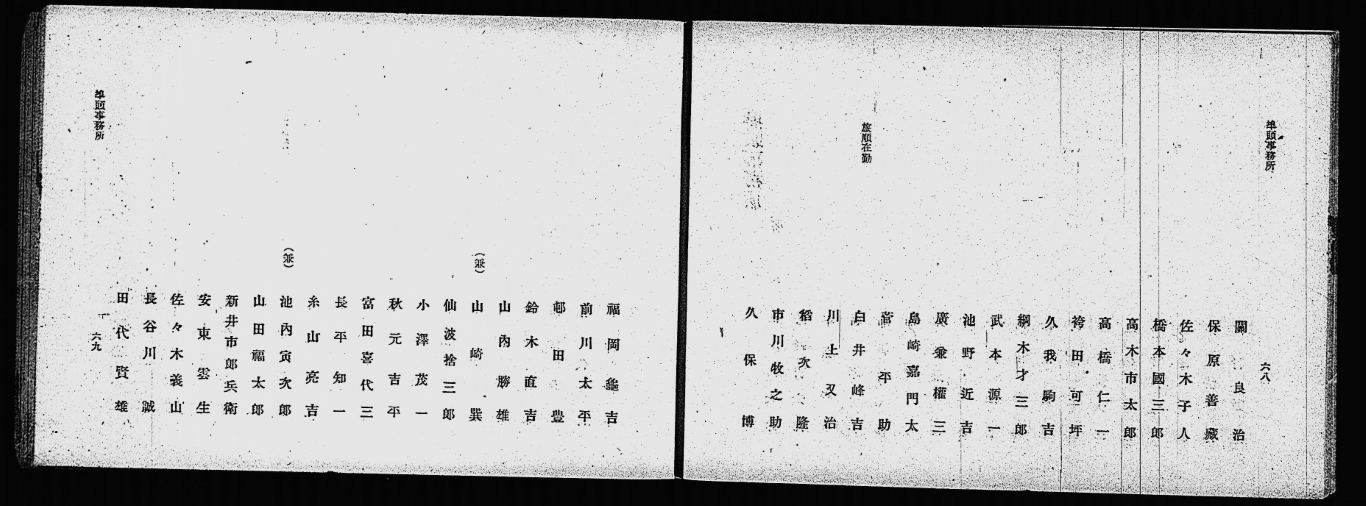 埠頭事務所
六八
關良治
保原善藏
佐々木子人
橋本國三郎
高木市太郎
高橋仁一
袴田可坪
久我駒吉
綱木才三郎
武本源一
池野近吉
廣兼權三
島崎嘉門太
旅順在勤
菅平助
白井峰吉
川上又治
稻次隆
市川牧之助
久保博
福岡龜吉
前川太平
邨田豊
鈴木直吉
山內勝雄
(兼)山崎巽
仙波捨三郎
小澤茂一
秋元吉平
富田喜代三
長平知一
糸山亮吉
(兼)池內寅次郎
山田福太郎
新井市郎兵衛
安東雲生
佐々木義山
長谷川誠
田代賢雄
埠頭事務所
六九